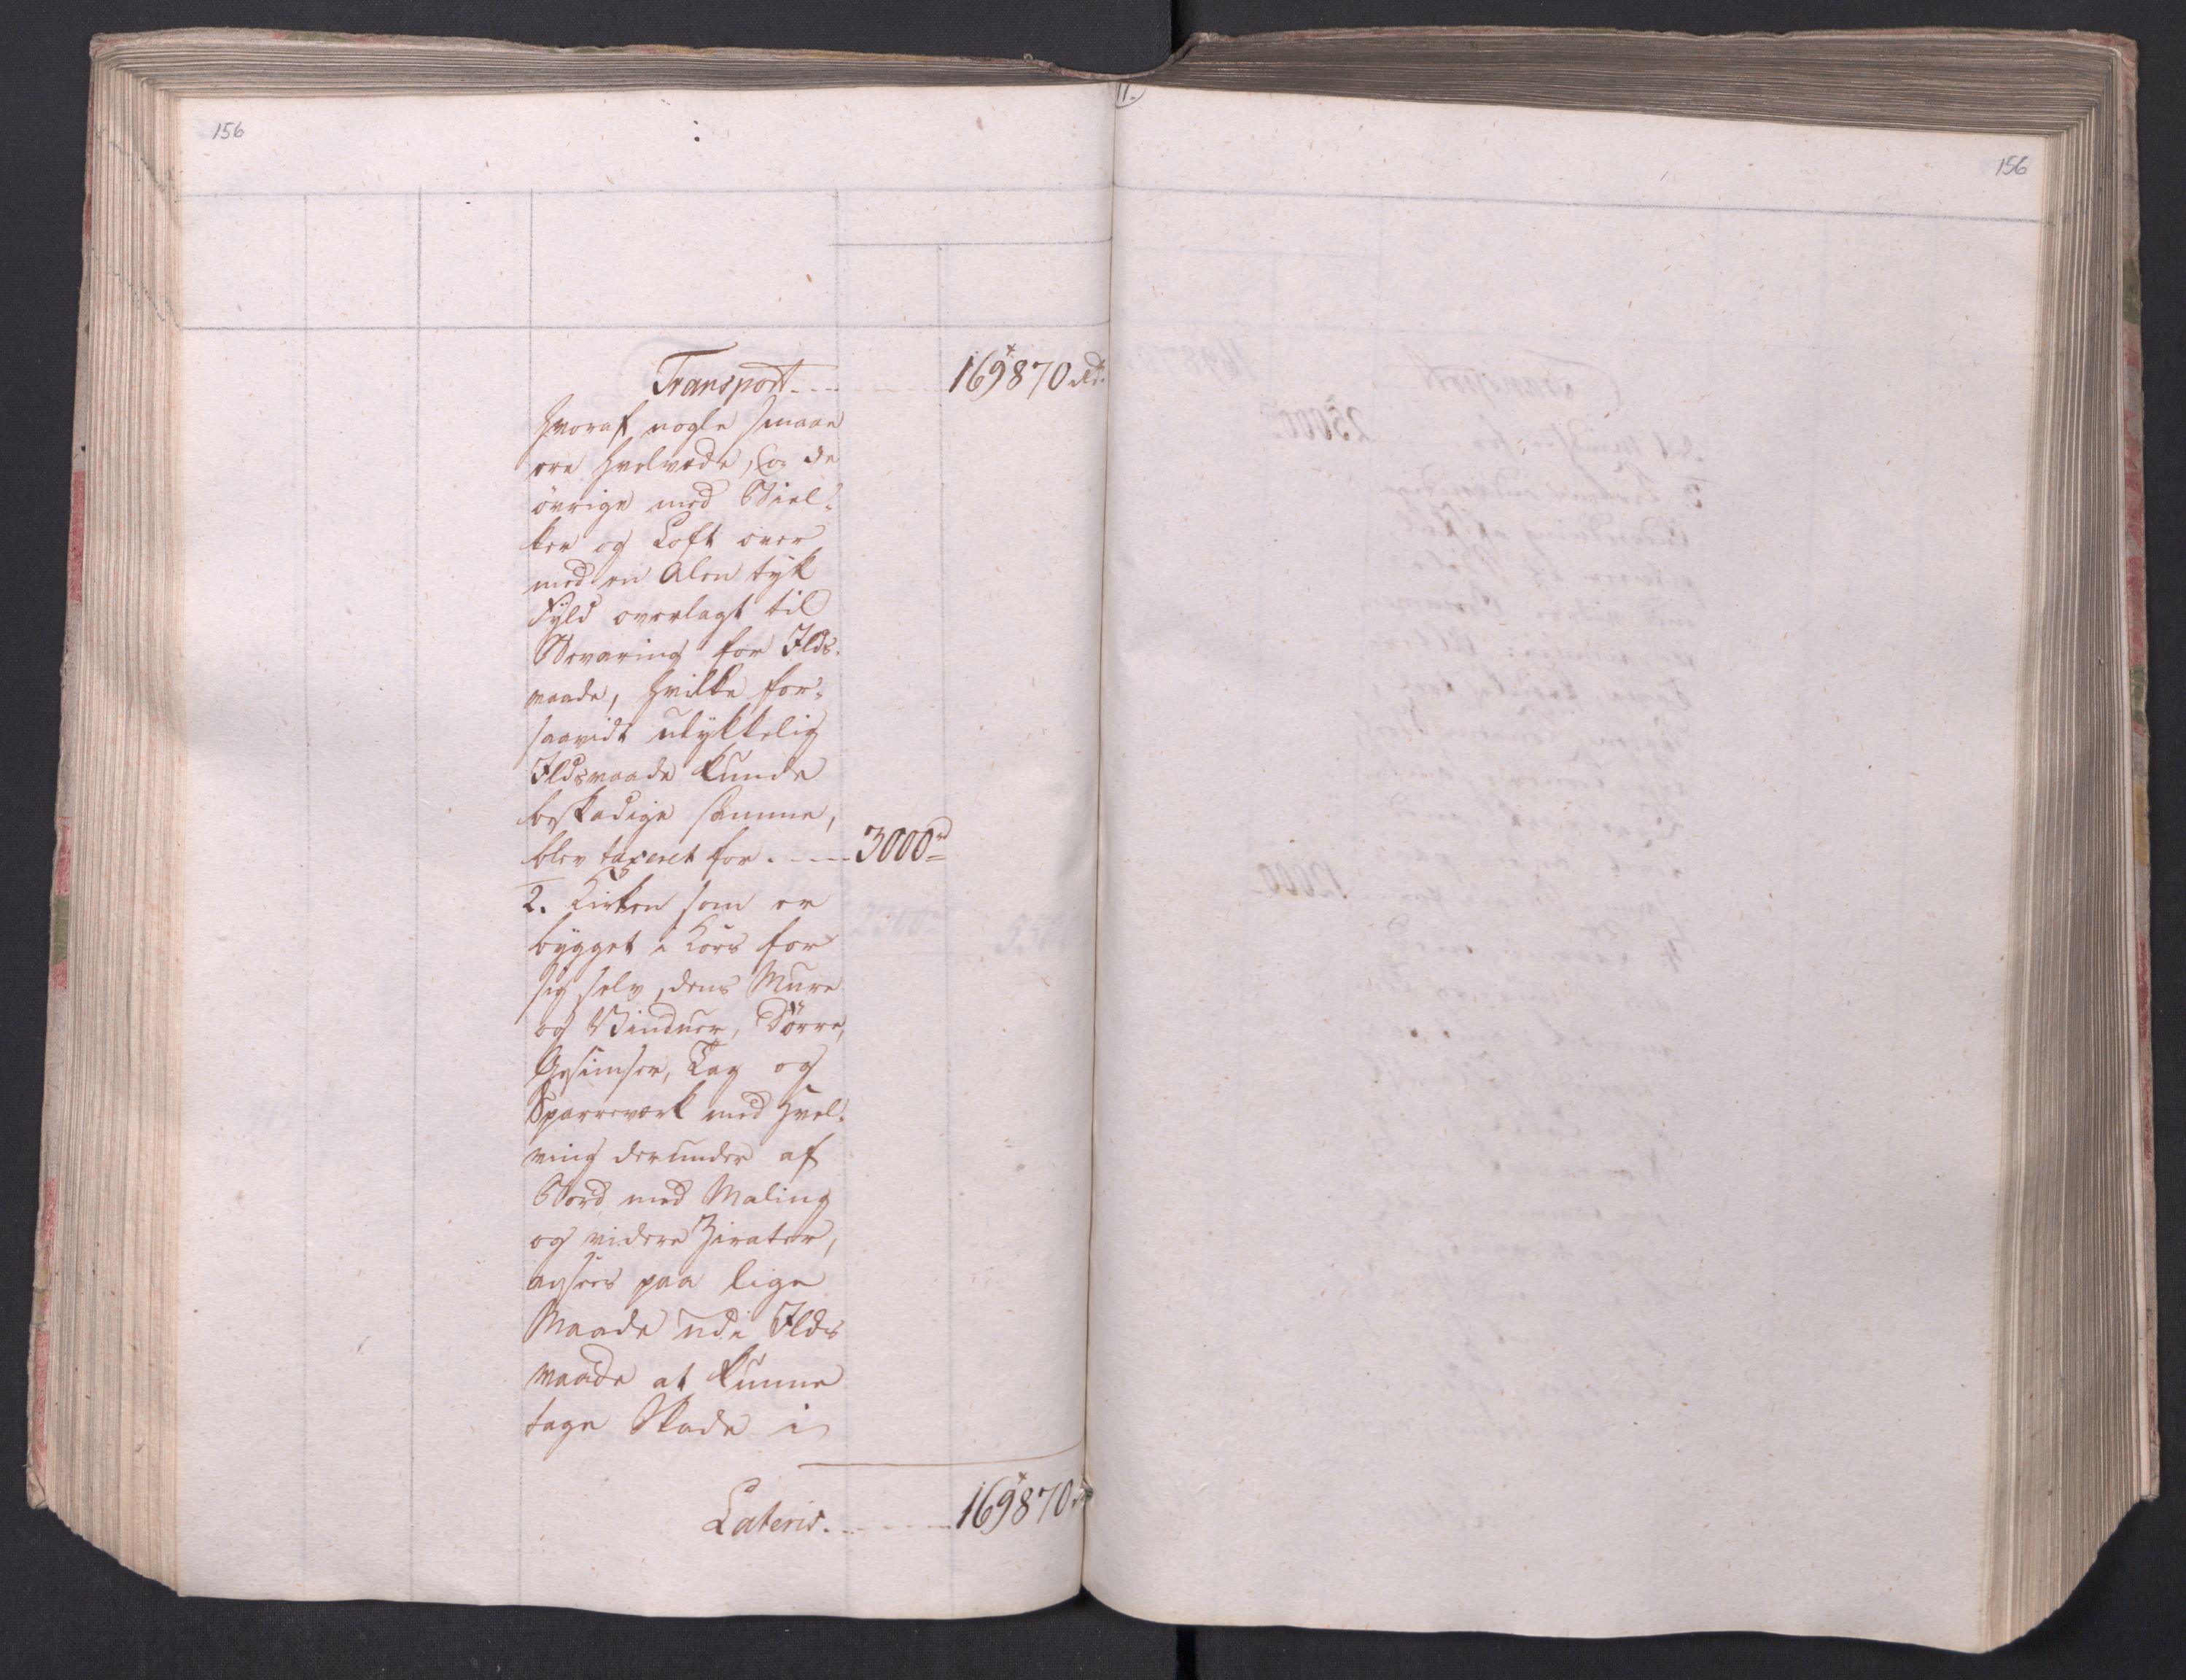 156
156
Transport - - - 169870 Rd.
hvoraf nogle smaae
ere Hvelvede, og de
övrige med Biel-
ker og Loft over
med en Alen tyk
Fyld overlagt til
Bevaring for Ilds-
vaade, hvilke for-
saavidt ulykkelig
Ildsvaade kunde
beskadige samme,
blev taxeret for . - - - 3000 rd
2. Kirken som er
bygget i Kors for
sig selv, dens Mure
og Vinduer, Dørre,
Gesimser, Tag og
Sparreværk med Hvel-
ving derunder af
Bord med Maling
og videre Zirater,
ansees paa lige
Maade udi Ilds
vaade at kunne
tage Skade i
Lateris. - - - - 169870